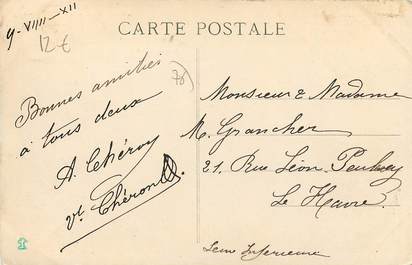 9-VIIII-XII
12 €
CARTE POSTALE
Bonnes amitiés
à tous deux
A. Chéron
Vt Chéron
Monsieur & Madame
M. Grancher
21. Rue Léon Peulvey
Le Havre.
Seine Inférieure